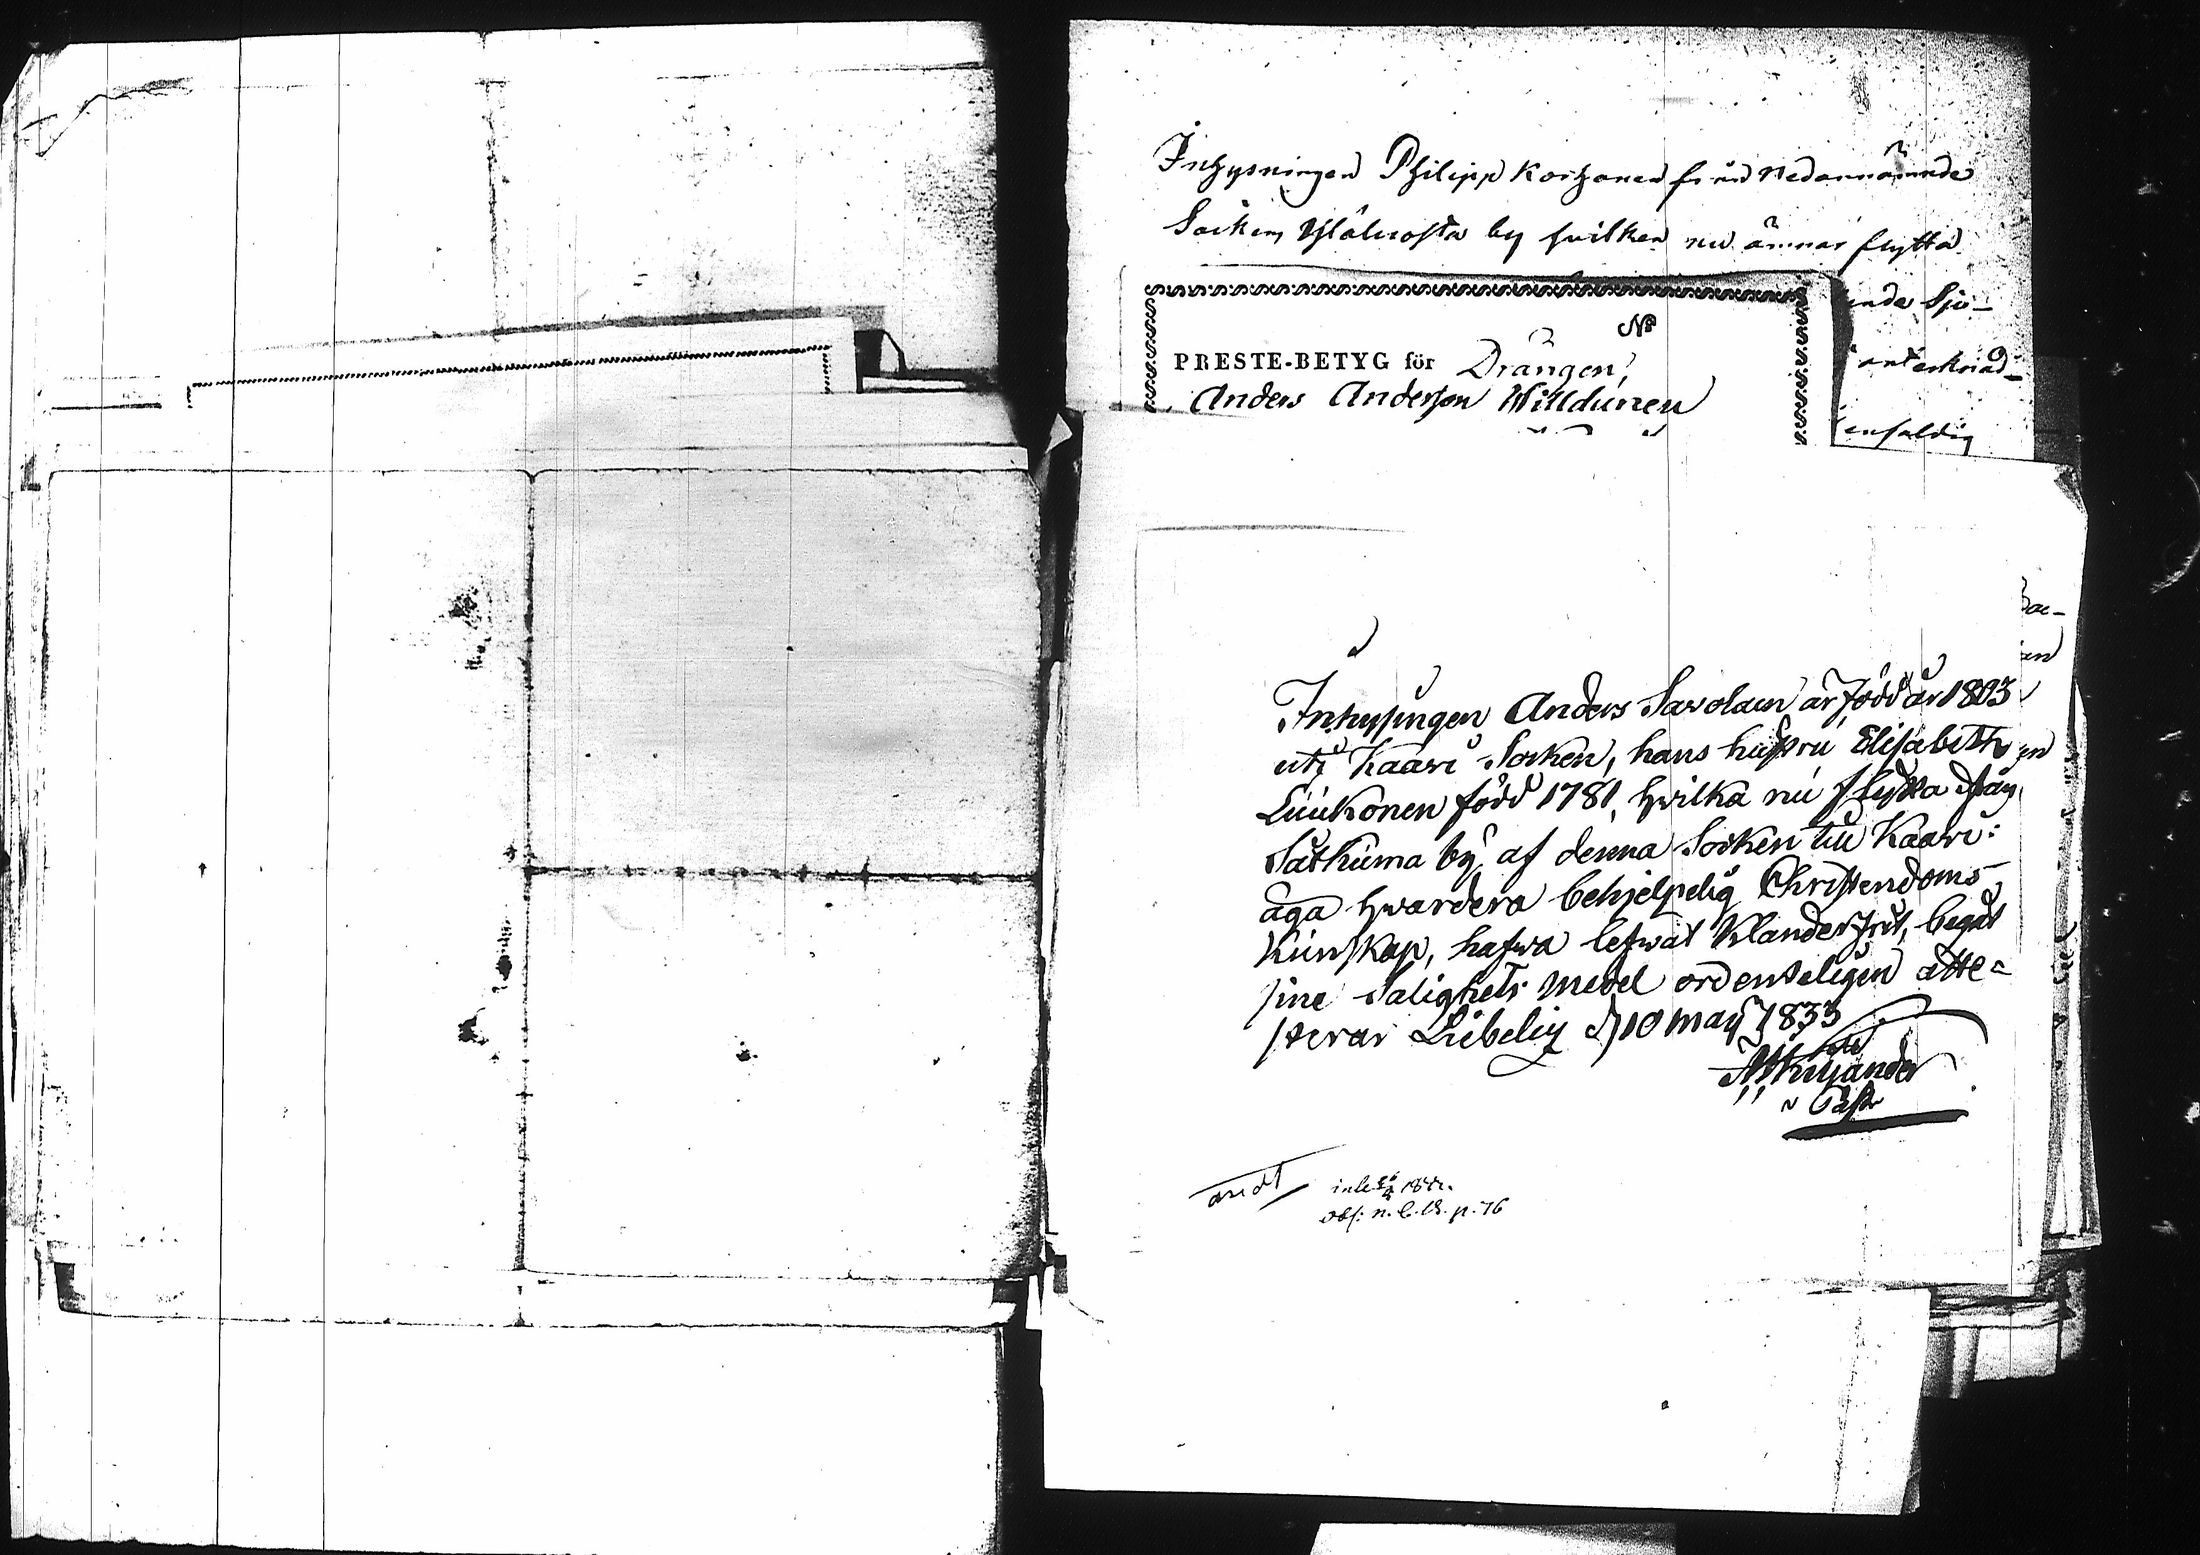 Inhysningen Philipp Korhonen från Nedannämnde
Socken, by hvilken nu ämnar flytta
ande Sju-
anterknad_
enfaldig
No
PRESTE-BETYG för Drängen,
Anders Anderson Willdunen
Inhysingen Anders Savolain är född år 1803
uti Kaavi Socken, hans hustru Elisabeth
Liukonen född 1781, hvilka nu flytta från
Satkuma by af denna Socken till Kaavi:
äga hvardera behjelpelig Christendoms
Kunskap, hafwa lefwat Klanderfrit, begåt
sine Salighets medel ordenteligen atte=
sterar Libelitz d 10 Maij 1833
Past
inl. 1842.
obs: n. C. B. p. 76